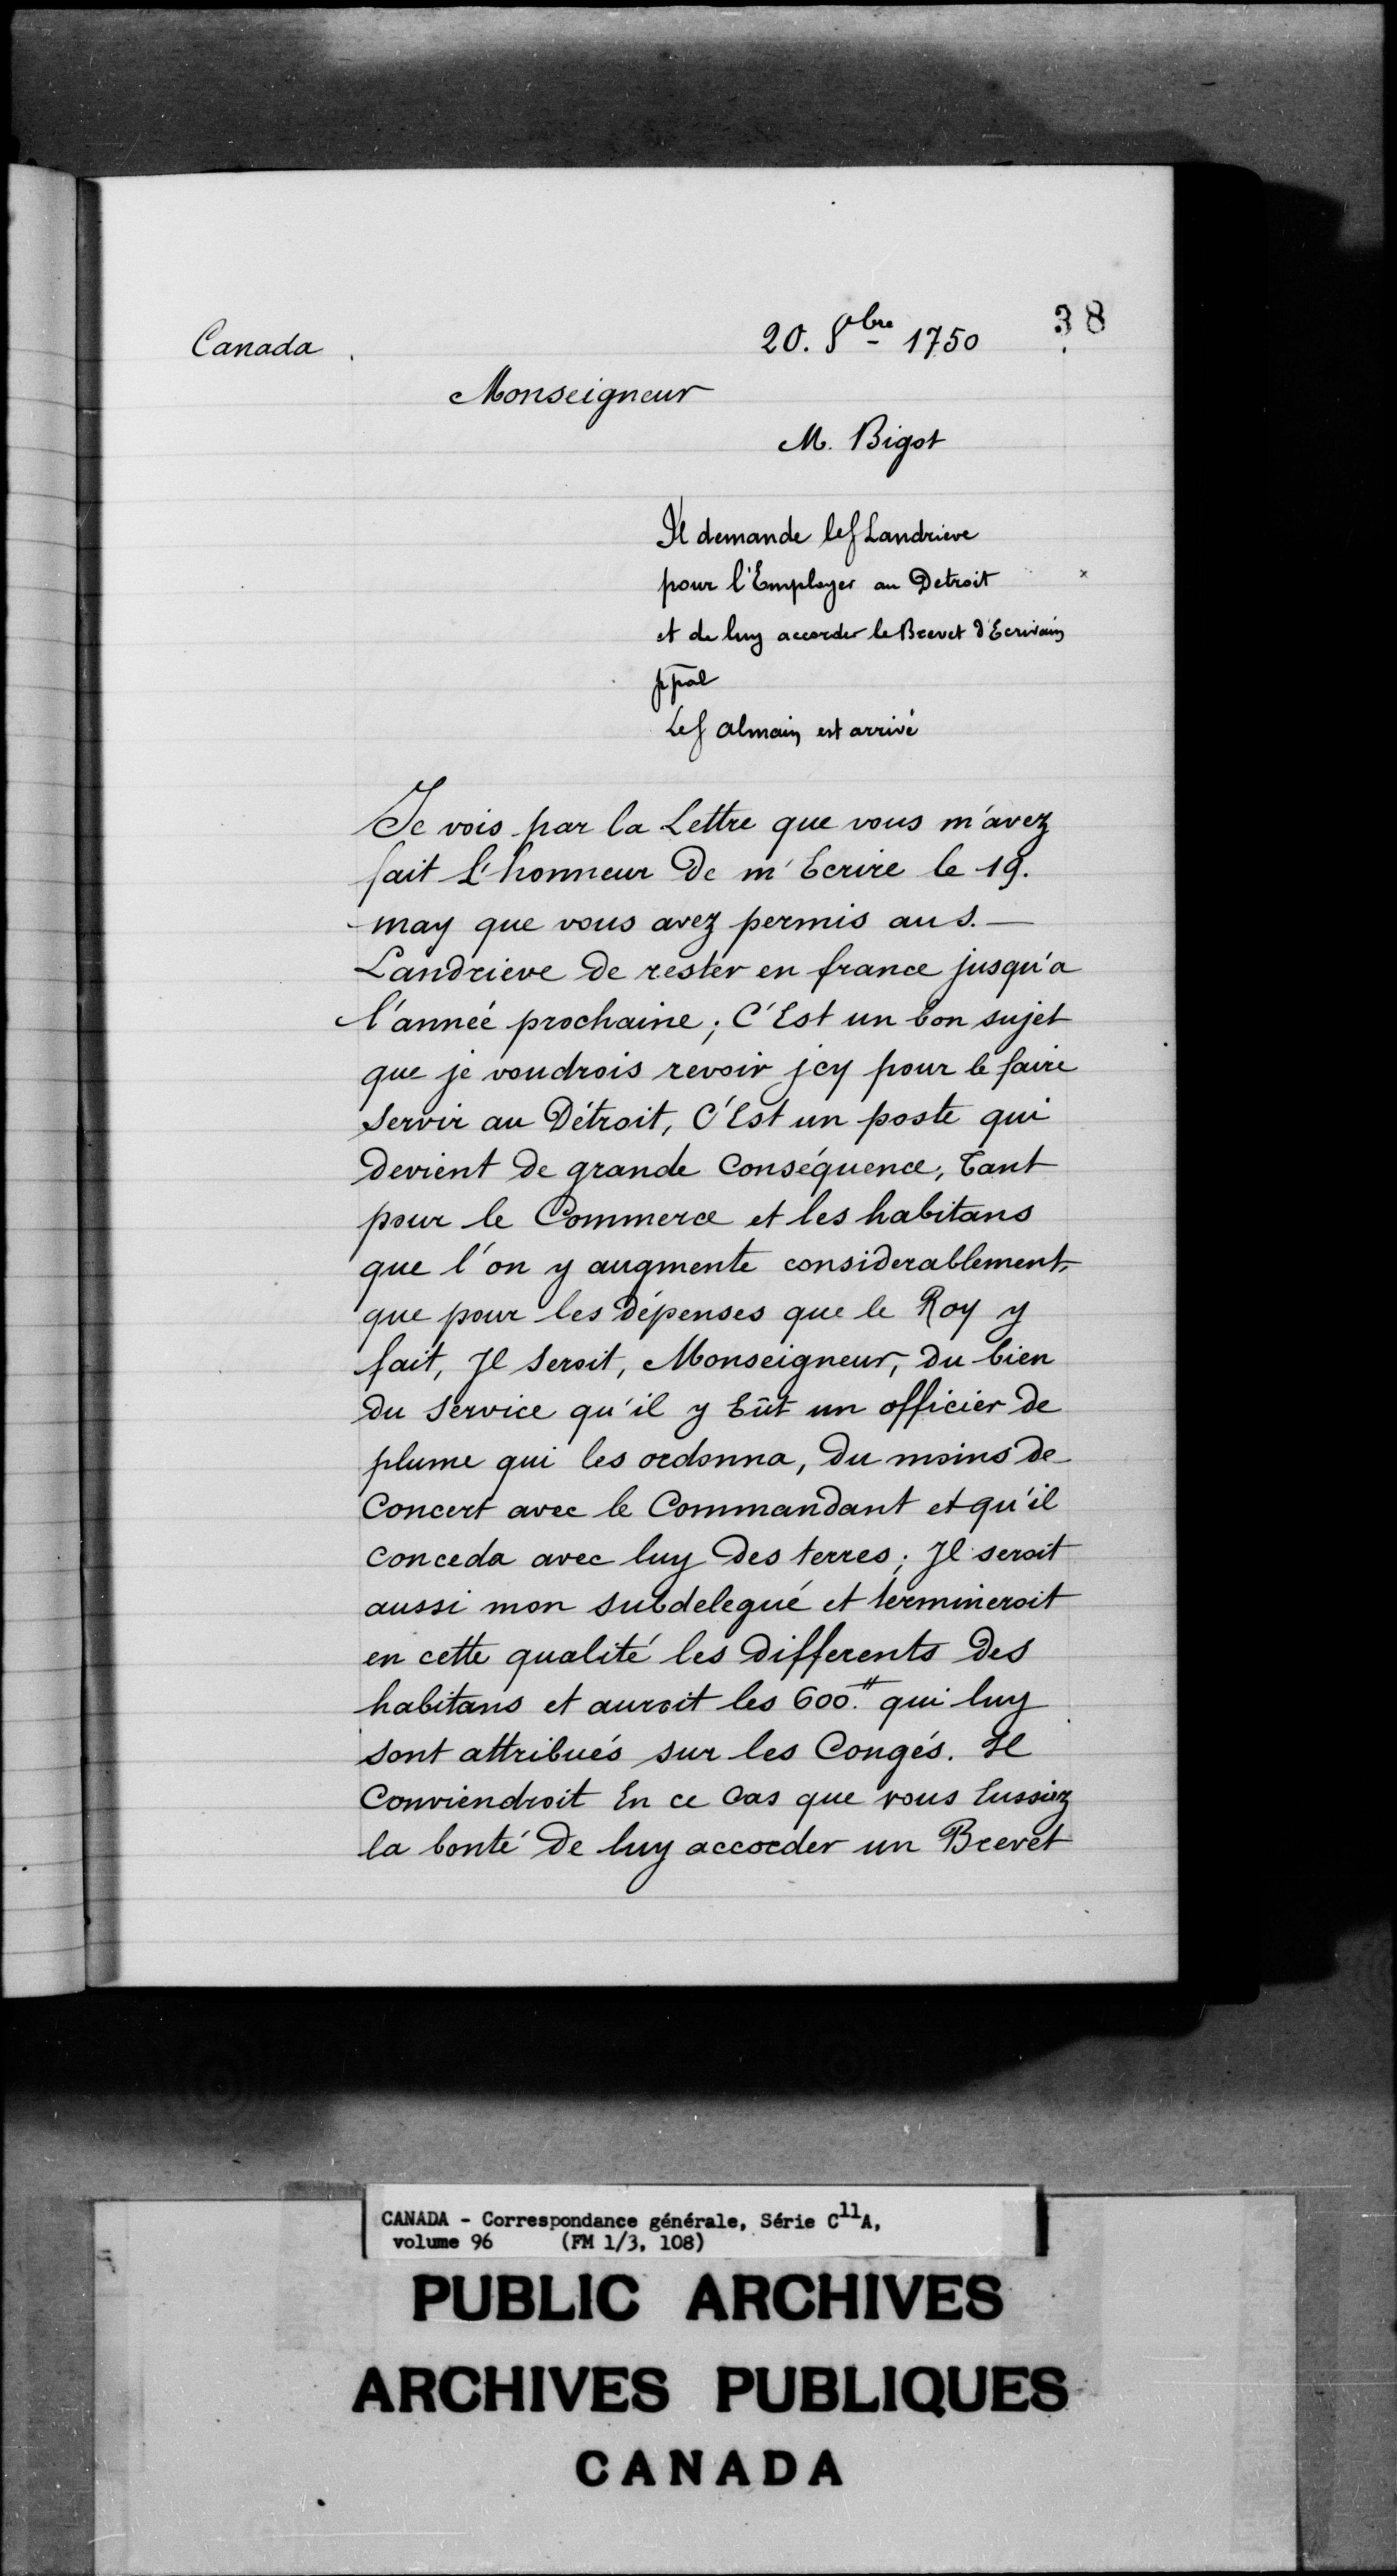 38
Canada
20. 8bre 1750
Monseigneur
M. Bigot
Il demande le s Landrieve
pour l'Employer au Detroit
et de luy accorder le Brevet d'Ecrivain
ppal
Le s Almain est arrivé
Je vois par la Lettre que vous m'avez
fait L'honneur De m'Ecrire le 19.
may que vous avez permis au s. —
Landrieve de rester en france jusqu'a
l'année prochaine; C'Est un bon sujet
que je voudrois revoir jcy pour le faire
servir au Détroit, C'Est un poste qui
Devient De grande Conséquence, Tant
pour le Commerce et les habitans
que l'on y augmente considerablement,
que pour les Dépenses que le Roy y
fait, Jl seroit, Monseigneur, Du bien
Du service qu'il y Eût un officier De
plume qui les ordonna, Du moins De
Concert avec le Commandant et qu'il
conceda avec luy Des terres; Jl seroit
aussi mon subdelegué et termineroit
en cette qualité les Differents Des
habitans et auroit les 600.# qui luy
sont attribués sur les Congés. Il
Conviendroit En ce Cas que vous Eussiez
la bonté De luy accorder un Brevet
CANADA - Correspondance générale, Série C11A,
volume 96 (FM 1/3, 108)
PUBLIC ARCHIVES
ARCHIVES PUBLIQUES
CANADA